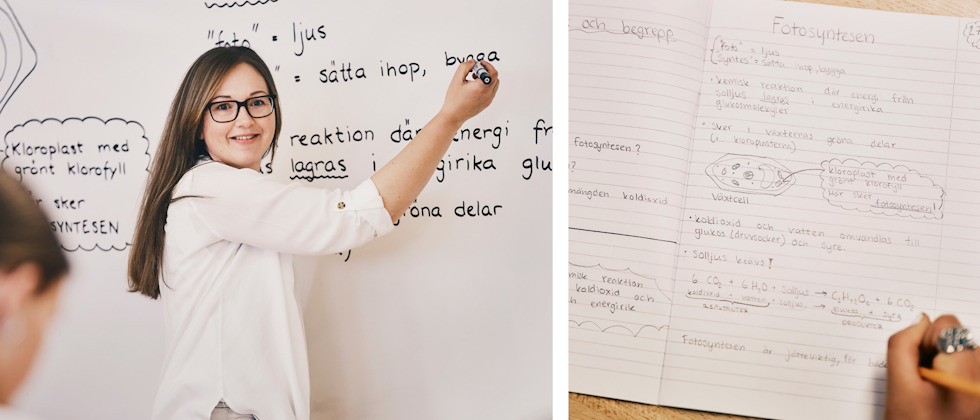 "foto" = ljus
" = sätta ihop, bygga
reaktion där energi fr
s lagras i ergirika glu
gröna delar
Kloroplast med
grönt klorofyll
sker
SYNTESEN
och begrepp.
fotosyntesen?
?
mängden koldioxid
misk reaktion
koldioxid och
h energirik
Fotosyntesen
"foto" = ljus
"syntes" = sätta ihop, bygga
• kemisk reaktion där energi från
solljus lagras i energirika
glukosmolekyler
• sker i växternas gröna delar
(i kloroplasterna)
Växtcell
kloroplast med
grönt klorofyll
Här sker fotosyntesen!
• koldioxid och vatten omvandlas till
glukos (druvsocker) och syre.
• solljus krävs!
6 CO₂ + 6 H₂O + solljus → C₆H₁₂O₆ + 6 CO₂
koldioxid + vatten + solljus → glukos + syre
REAKTANTER PRODUKTER
Fotosyntesen är jätteviktig, för både